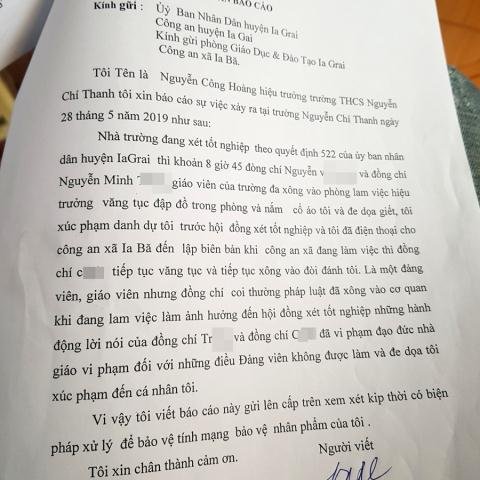 BÁO CÁO
Kính gửi : Ủy Ban Nhân Dân huyện Ia Grai
Công an huyện Ia Gai
Kính gửi phòng Giáo Dục & Đào Tạo Ia Grai
Công an xã Ia Bă.
Tôi Tên là Nguyễn Công Hoàng hiệu trưởng trường THCS Nguyễn
Chí Thanh tôi xin báo cáo sự việc xảy ra tại trường Nguyễn Chí Thanh ngày
28 tháng 5 năm 2019 như sau:
Nhà trường đang xét tốt nghiệp theo quyết định 522 của ủy ban nhân
dân huyện IaGrai thì khoản 8 giờ 45 đồng chí Nguyễn v và đồng chí
Nguyễn Minh T giáo viên của trường đa xông vào phòng làm việc hiệu
trưởng văng tục đập đồ trong phòng và nắm cổ áo tôi và đe dọa giết, tôi
xúc phạm danh dự tôi trước hội đồng xét tốt nghiệp và tôi đã điện thoại cho
công an xã Ia Bă đến lập biên bản khi công an xã đang làm việc thì đồng
chí c tiếp tục văng tục và tiếp tục xông vào đòi đánh tôi. Là một đảng
viên, giáo viên nhưng đồng chí coi thường pháp luật đã xông vào cơ quan
khi đang lam việc làm ảnh hưởng đến hội đồng xét tốt nghiệp những hành
động lời nói của đồng chí Tr và đồng chí C đã vi phạm đạo đức nhà
giáo vi phạm đối với những điều Đảng viên không được làm và đe dọa tôi
xúc phạm đến cá nhân tôi.
Vi vậy tôi viết báo cáo này gửi lên cấp trên xem xét kip thời có biện
pháp xử lý để bảo vệ tính mạng bảo vệ nhân phẩm của tôi .
Tôi xin chân thành cảm ơn.
Người viết